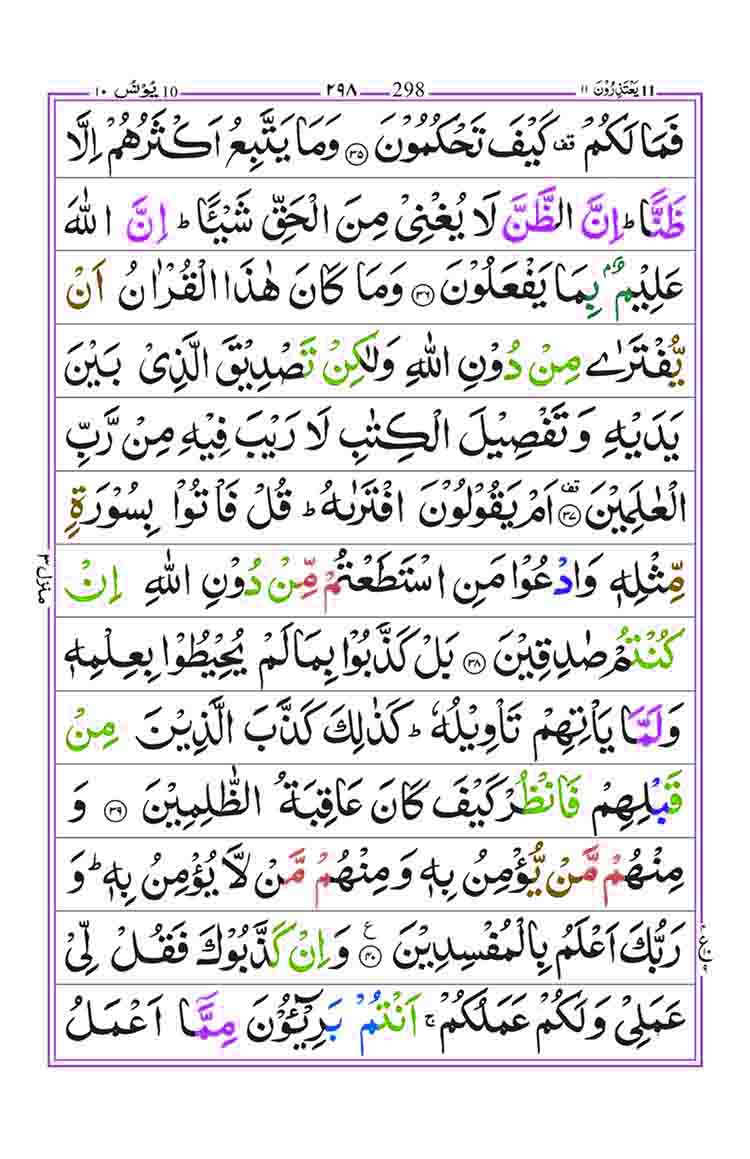 ۱۰ يُوْنُسَ 10 ۲۹۸ 298 ۱۱ يَعْتَذِرُوْنَ 11
فَمَا لَكُمْ قف كَيْفَ تَحْكُمُوْنَ ۝۳۵ وَمَا يَتَّبِعُ اَكْثَرُهُمْ اِلَّا
ظَنًّا ؕ اِنَّ الظَّنَّ لَا يُغْنِىْ مِنَ الْحَقِّ شَيْـًٔا ؕ اِنَّ اللّٰهَ
عَلِيْمٌۢ بِمَا يَفْعَلُوْنَ ۝۳۶ وَمَا كَانَ هٰذَا الْقُرْاٰنُ اَنْ
يُّفْتَرٰى مِنْ دُوْنِ اللّٰهِ وَلٰكِنْ تَصْدِيْقَ الَّذِىْ بَيْنَ
يَدَيْهِ وَتَفْصِيْلَ الْكِتٰبِ لَا رَيْبَ فِيْهِ مِنْ رَّبِّ
الْعٰلَمِيْنَ قف ۝۳۷ اَمْ يَقُوْلُوْنَ افْتَرٰىهُ ؕ قُلْ فَاْتُوْا بِسُوْرَةٍ
مِّثْلِهٖ وَادْعُوْا مَنِ اسْتَطَعْتُمْ مِّنْ دُوْنِ اللّٰهِ اِنْ
كُنْتُمْ صٰدِقِيْنَ ۝۳۸ بَلْ كَذَّبُوْا بِمَا لَمْ يُحِيْطُوْا بِعِلْمِهٖ
وَلَمَّا يَاْتِهِمْ تَاْوِيْلُهٗ ؕ كَذٰلِكَ كَذَّبَ الَّذِيْنَ مِنْ
قَبْلِهِمْ فَانْظُرْ كَيْفَ كَانَ عَاقِبَةُ الظّٰلِمِيْنَ ۝۳۹ وَ
مِنْهُمْ مَّنْ يُّؤْمِنُ بِهٖ وَمِنْهُمْ مَّنْ لَّا يُؤْمِنُ بِهٖ ؕ وَ
رَبُّكَ اَعْلَمُ بِالْمُفْسِدِيْنَ ع ۝۴۰ وَاِنْ كَذَّبُوْكَ فَقُلْ لِّىْ
عَمَلِىْ وَلَكُمْ عَمَلُكُمْ ۚ اَنْتُمْ بَرِيْٓـُٔوْنَ مِمَّاۤ اَعْمَلُ
منزل ۳